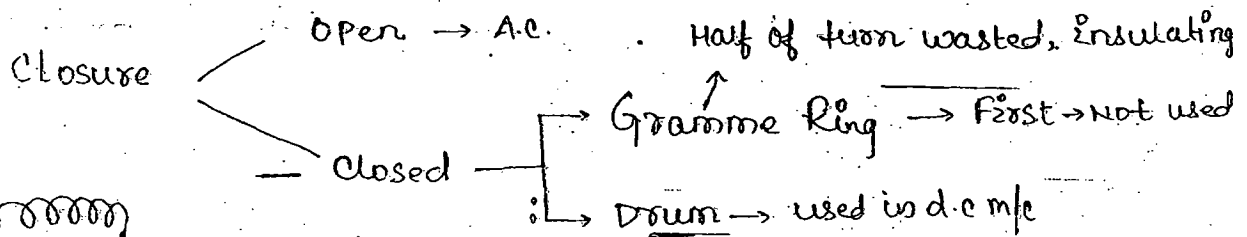 Open → A.C. Half of turn wasted, insulating
Closure
Gramme Ring → First → Not used
Closed
Drum → used in d.c m/c